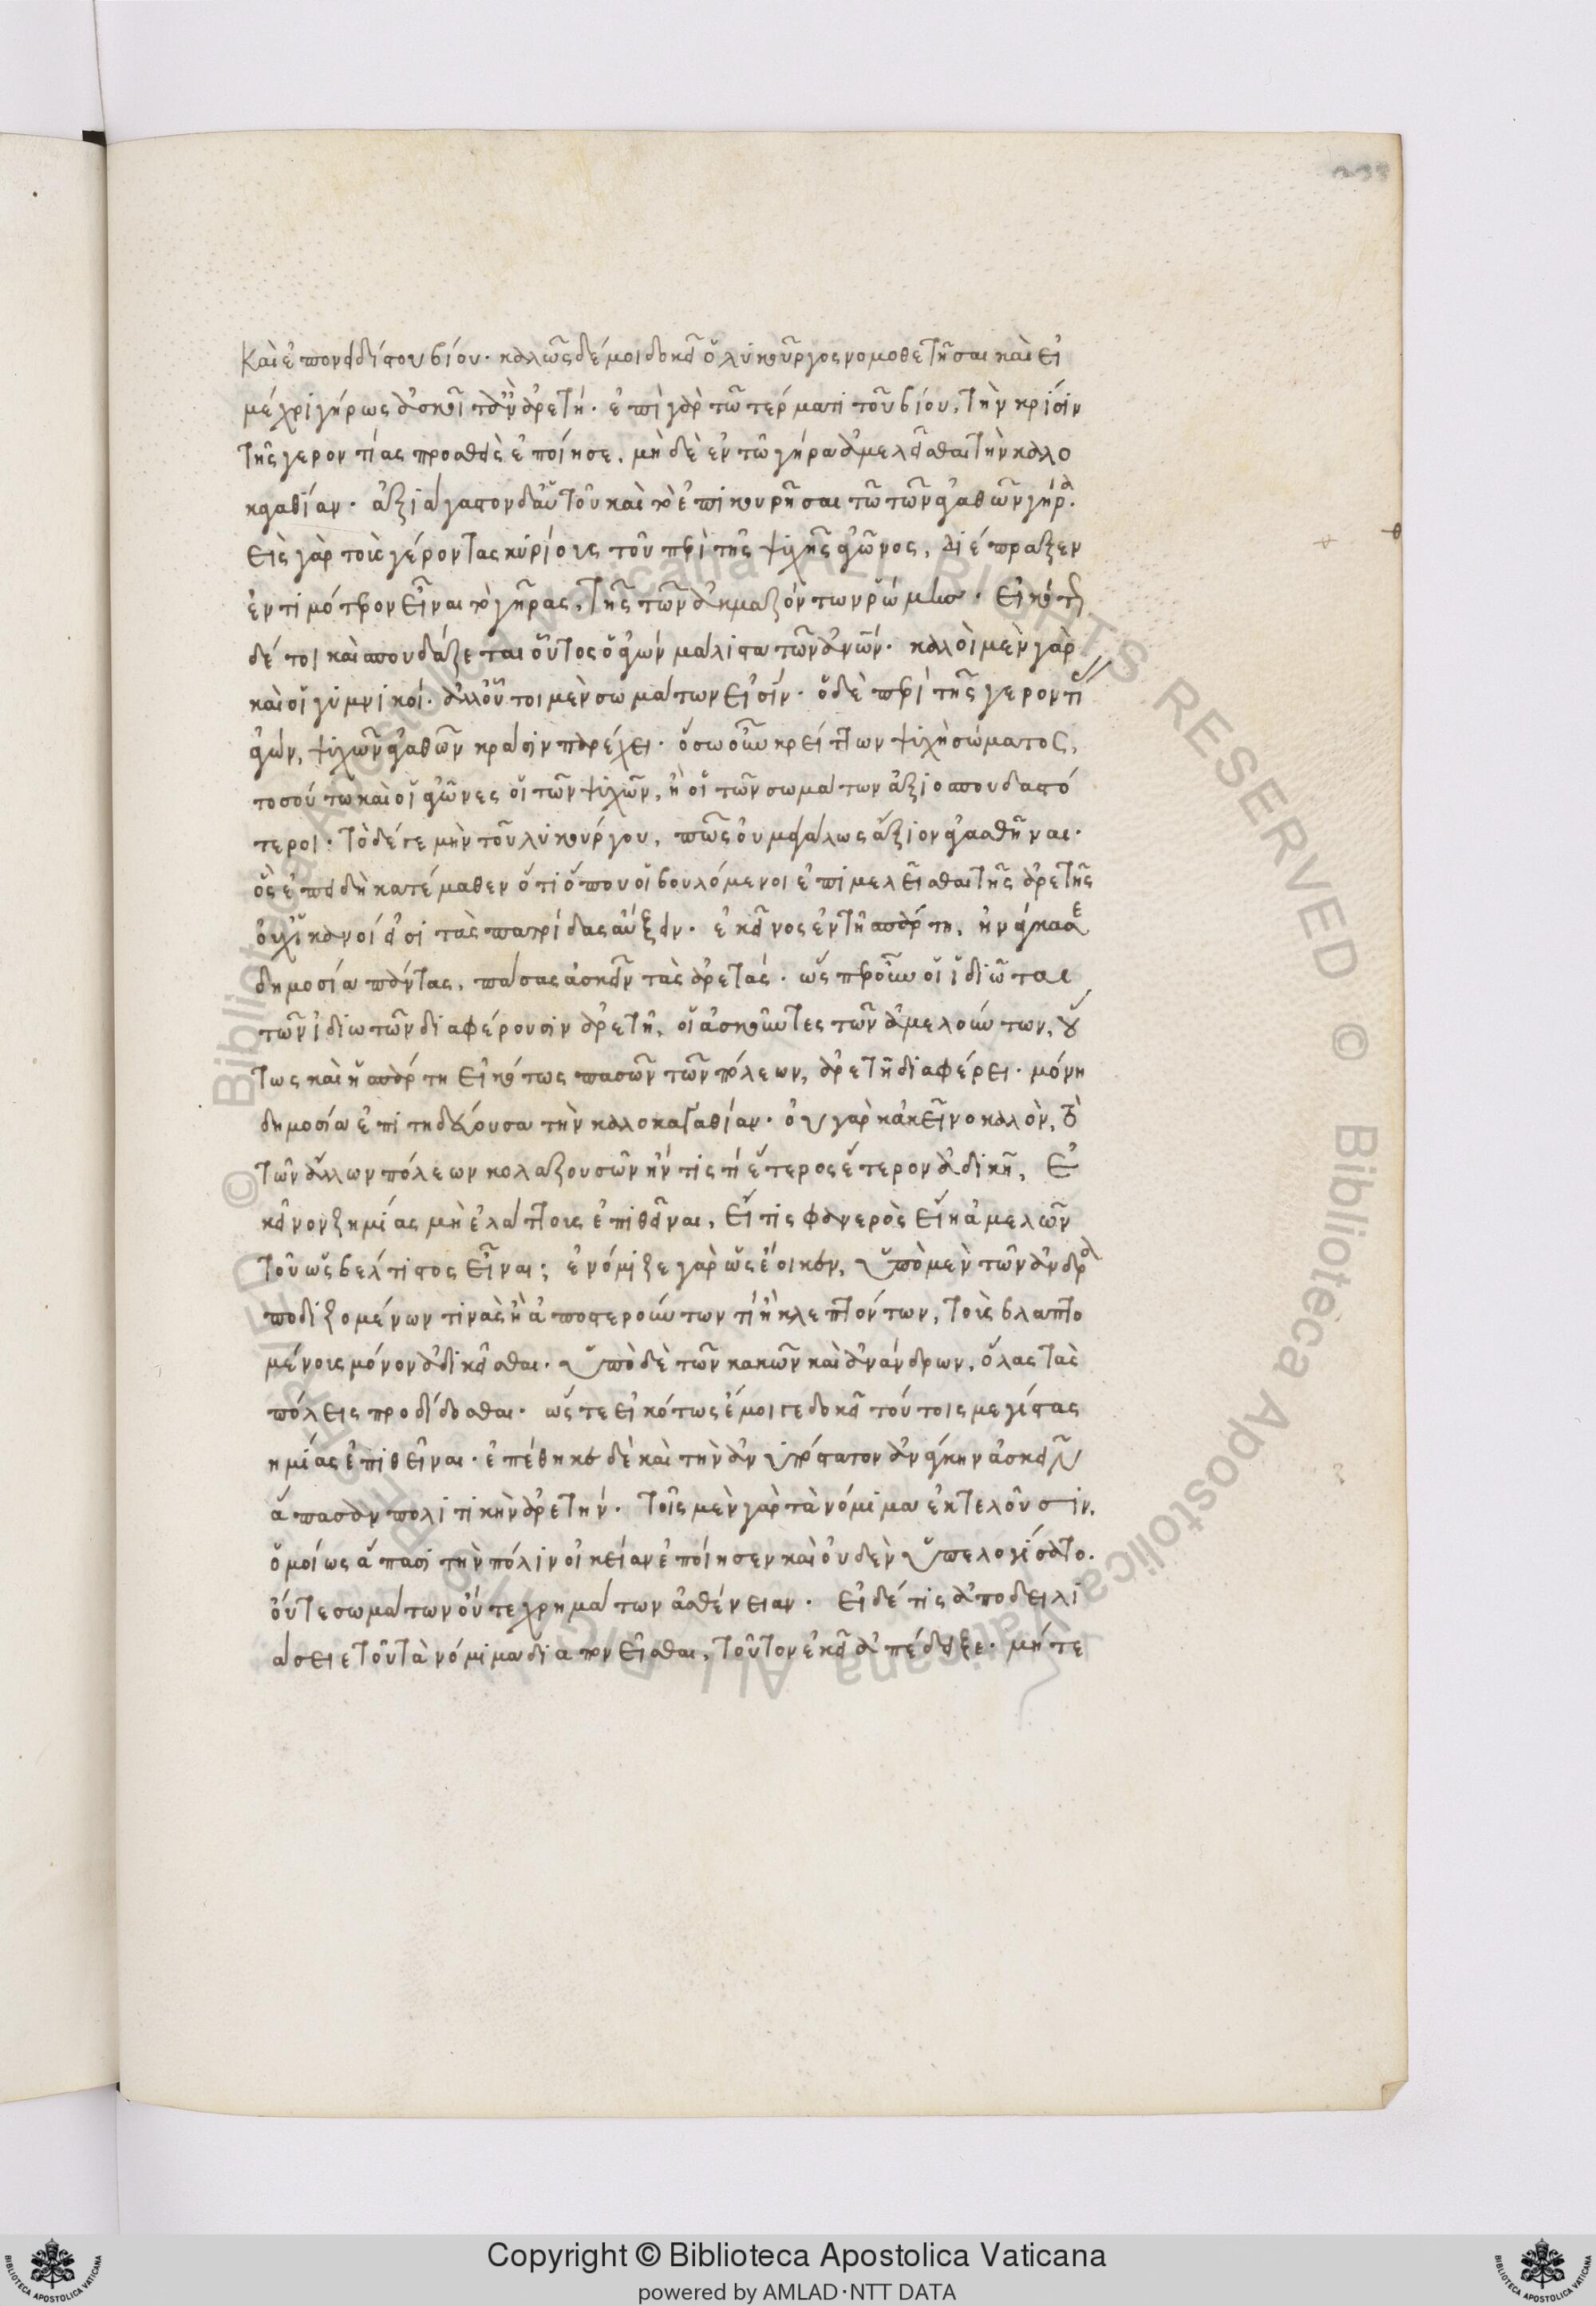 καὶ ἐπονειδίστου βίου· καλῶς δέ μοι δοκεῖ ὁ λυκοῦργος νομοθετῆσαι καὶ εἰ
μέχρι γήρως ἀσκοῖτ᾽ ἂν ἀρετή· ἐπὶ γὰρ τῶ τέρματι τοῦ βίου, τὴν κρίσιν
τῆς γεροντίας προσθεὶς ἐποίησε, μὴ δὲ ἐν τῶ γήρα ἀμελεῖσθαι τὴν καλο
κἀγαθίαν· ἀξιάγαστον δ᾽ αὐτοῦ καὶ τὸ ἐπικουρῆσαι τῶ τῶν ἀγαθῶν γήρα·
θεὶς γὰρ τοὺς γέροντας κυρίους τοῦ περὶ τῆς ψυχῆς ἀγῶνος, διέπραξεν
ἐντιμότερον εἶναι τὸ γῆρας, τῆς τῶν ἀκμαζόντων ῥώμης· εἰκότως
δέ τοι καὶ σπουδάζεται οὗτος ὁ ἀγὼν μάλιστα τῶν ἀνθρωπίνων· καλοὶ μὲν γὰρ
καὶ οἱ γυμνικοί· ἀλλ᾽ οὗτοι μὲν σωμάτων εἰσίν· ὁ δὲ περὶ τῆς γεροντίας
ἀγών, ψυχῶν ἀγαθῶν κρίσιν παρέχει· ὅσω οὖν κρείττων ψυχὴ σώματος,
τοσούτω καὶ οἱ ἀγῶνες οἱ τῶν ψυχῶν, ἢ οἱ τῶν σωμάτων ἀξιοσπουδαστό
τεροι· τὸ δέ γε μὴν τοῦ λυκούργου, πῶς οὐ μεγάλως ἄξιον ἀγασθῆναι·
ὃς ἐπειδὴ κατέμαθεν ὅτι ὅπου οἱ βουλόμενοι ἐπιμελεῖσθαι τῆς ἀρετῆς
οὐχ ἱκανοί εἰσι τὰς πατρίδας αὔξειν· ἐκεῖνος ἐν τῆ σπάρτη, ἠνάγκασε
δημοσία πάντας, πάσας ἀσκεῖν τὰς ἀρετάς· ὥσπερ οὖν οἱ ἰδιῶται
τῶν ἰδιωτῶν διαφέρουσιν ἀρετῆ, οἱ ἀσκοῦντες τῶν ἀμελούντων, οὕ
τως καὶ ἡ σπάρτη εἰκότως πασῶν τῶν πόλεων, ἀρετῆ διαφέρει· μόνη
δημοσία ἐπιτηδεύουσα τὴν καλοκαγαθίαν· οὐ γὰρ κἀκεῖνο καλὸν, τὸ
τῶν ἄλλων πόλεων κολαζουσῶν ἤν τίς τι ἕτερος ἕτερον ἀδικῆ, ἐ
κεῖνον ζημίας μὴ ἐλάττους ἐπιθεῖναι, εἴ τις φανερὸς εἴη ἀμελῶν
τοῦ ὡς βέλτιστος εἶναι; ἐνόμιζε γὰρ ὡς ἔοικεν, ὑπὸ μὲν τῶν ἀνδρα
ποδιζομένων τινὰς ἢ ἀποστερούντων τί ἢ κλεπτόντων, τοὺς βλαπτο
μένους μόνον ἀδικεῖσθαι· ὑπὸ δὲ τῶν κακῶν καὶ ἀνάνδρων, ὅλας τὰς
πόλεις προδίδοσθαι· ὥστε εἰκότως ἔμοιγε δοκεῖ τούτοις μεγίστας
ημίας ἐπιθεῖναι· ἐπέθηκε δὲ καὶ τὴν ἀνυπόστατον ἀνάγκην ἀσκεῖν
ἅπασαν πολιτικὴν ἀρετήν· τοῖς μὲν γὰρ τὰ νόμιμα ἐκτελοῦσιν,
ὁμοίως ἅπασι τὴν πόλιν οἰκείαν ἐποίησεν καὶ οὐδὲν ὑπελογίσατο·
οὔτε σωμάτων οὔτε χρημάτων ἀσθένειαν· εἰ δέ τις ἀποδειλι
άσειε τοῦ τὰ νόμιμα διαπονεῖσθαι, τοῦτον ἐκεῖ ἀπέδειξε· μήτε